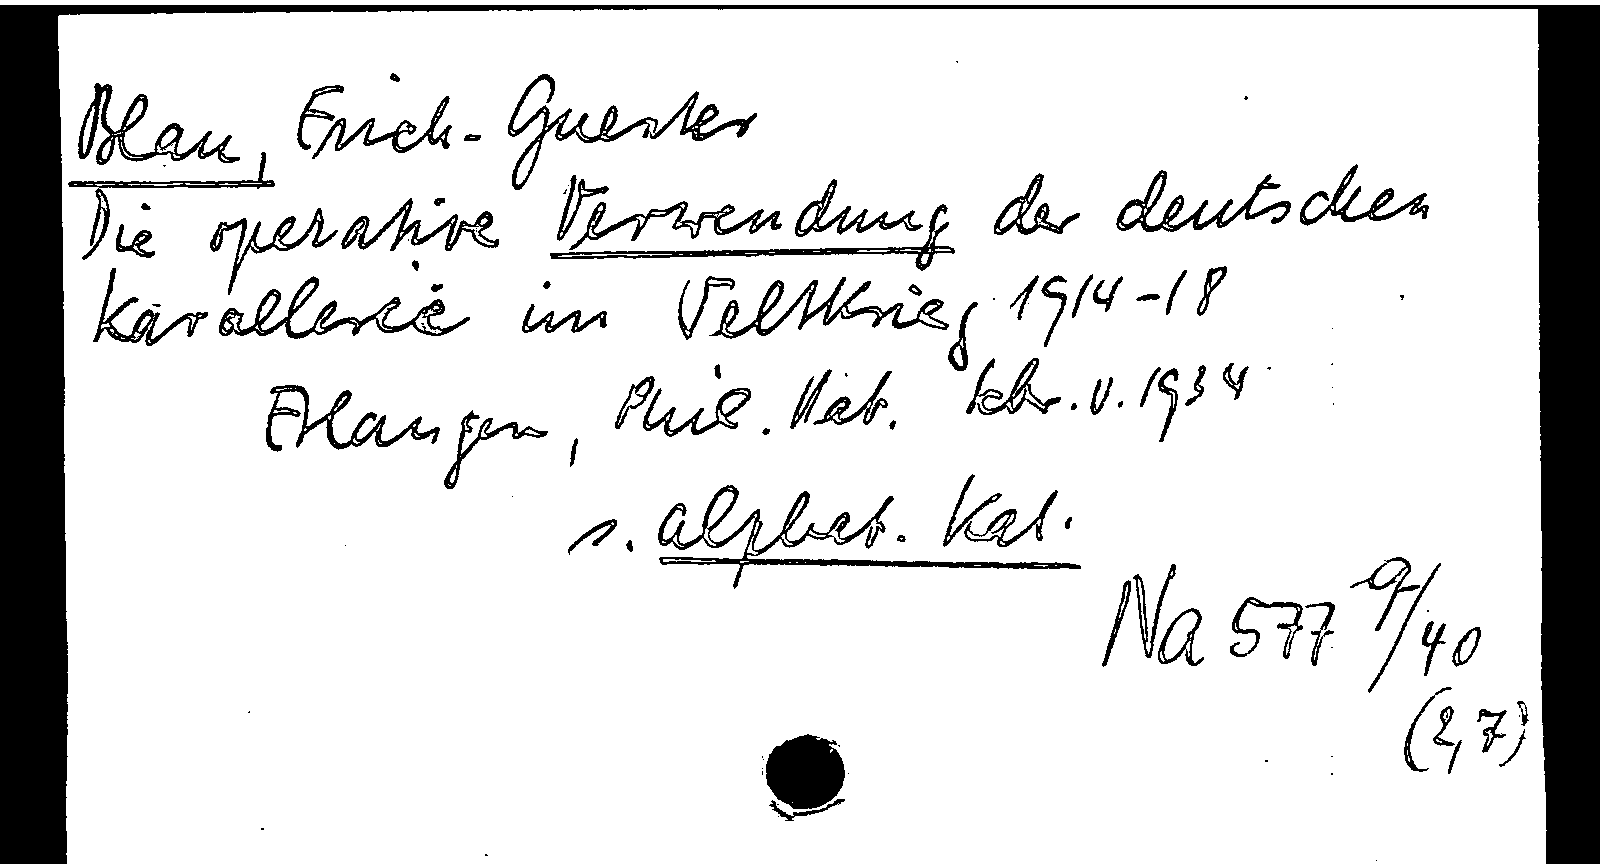 Blau, Erich-Guenter
Die operative Verwendung der deutschen
Kavallerie im Weltkrieg 1914-18
Erlangen, Phil. Hab. schr. v. 1934
s. alphab. Kat.
Na 577 q/40
(2,7)